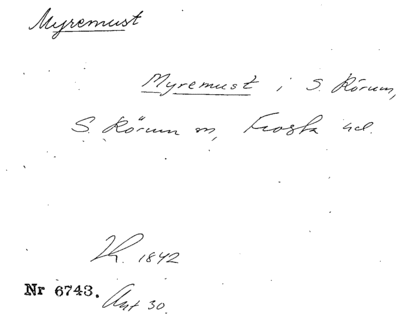 Myremust
Myremust i S. Rörum,
S. Rörum sn, Frosta hd.
Th. 1842
Nr 6743.
Ant 30.